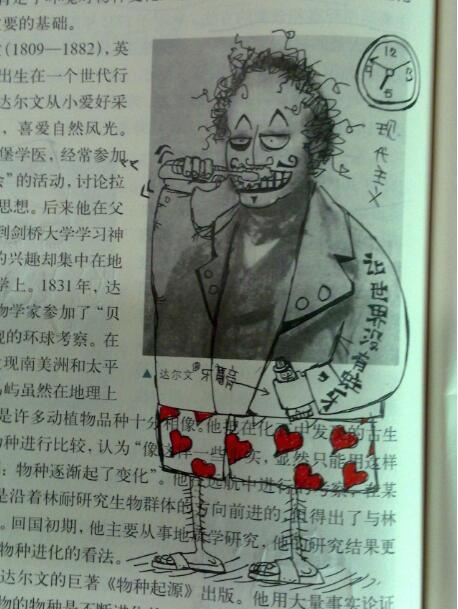 要的基础。
(1809—1882)，英
出生在一个世代行
达尔文从小爱好采
，喜爱自然风光。
堡学医，经常参加
会”的活动，讨论拉
思想。后来他在父
到剑桥大学学习神
的兴趣却集中在地
学上。1831年，达
物学家参加了“贝
舰的环球考察。在
发现南美洲和太平
岛屿虽然在地理上
12
现代主义
让世界没有蛀牙
▲ 达尔文®牙膏
是许多动植物品种十分相像。他把在化石中发现的古生
物种进行比较，认为“像这样一些事实，显然只能用这样
：物种逐渐起了变化”。他在远航中进行的考察，在某
是沿着林耐研究生物群体的方向前进的，但得出了与林
。回国初期，他主要从事地质学研究，他的研究结果更
物种进化的看法。
达尔文的巨著《物种起源》出版。他用大量事实论证